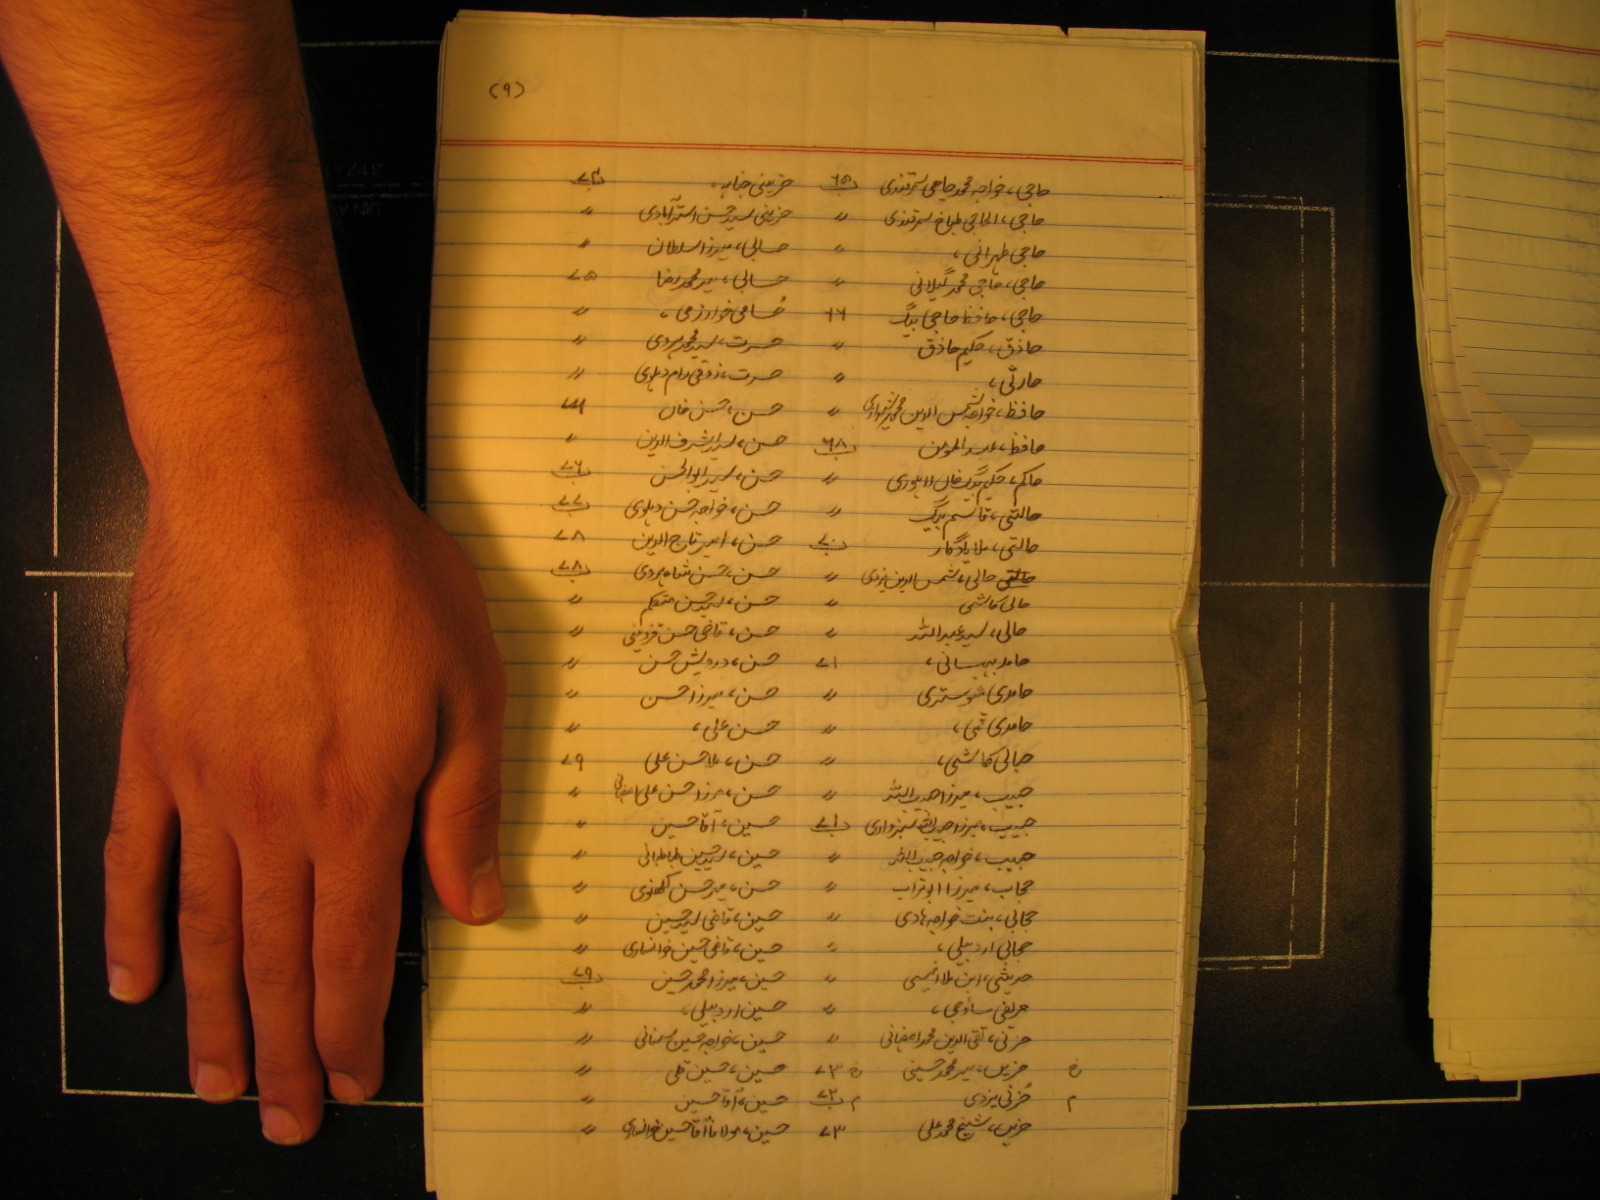 (۹)
حاجی، خواجه محمد جامی سمرقندی ۶۵ب حزینی خبازه، ۷۴ب
حاجی، الحاجی طباخ سمرقندی 〃 حزینی سید حسن استرآبادی 〃
حاجی طهرانی، 〃 حسابی، میرزا سلطان 〃
حاجی، حاجی محمد گیلانی 〃 حسابی، میر محمد رضا ۷۵
حاجی، حافظ حاجی بیگ ۶۶ حُسامی خوارزمی، 〃
حاذق، حکیم حاذق 〃 حسرت، سید محمد هروی 〃
حارثی، 〃 حسرت، ذوقی رام دهلوی 〃
حافظ، خواجه شمس الدین محمد شیرازی 〃 حسن، حسن خان
حافظ، عبد المومن ۶۸ب حسن، سید شرف الدین 〃
حاکم، حکیم بیگ خان لاهوری 〃 حسن، سید ابو الحسن ۷۶ب
حالتی، قاسم بیگ 〃 حسن، خواجه حسن دهلوی ۷۷ب
حالتی، ملا یادگار ۷۰ب حسن، امیر تاج الدین ۷۸
حالی، شمس الدین یزدی 〃 حسن، حسن شاه هروی ۷۸ب
حالی کاشی 〃 حسن، سید حسن متکلم 〃
حالی، سید عبد الله 〃 حسن، قاضی حسن قزوینی 〃
حامد بهبهانی، ۷۱ حسن، درویش حسن 〃
حامدی شوستری 〃 حسن، میرزا حسن 〃
حامدی قمی، 〃 حسن علی، 〃
حبابی کاشی، 〃 حسن، ملا حسن علی ۷۹
حبیب، میرزا حبیب الله 〃 حسن، میرزا حسن علی اصفهانی 〃
حبیب، میرزا حبیب الله سبزواری ۷۱ب حسین، آقا حسین 〃
حبیب، خواجه حبیب الله 〃 حسین، سید حسین طباطبائی 〃
حجاب، میرزا ابو تراب 〃 حسن، میر حسن لکھنوی 〃
حجابی، بنت خواجه هادی 〃 حسین، قاضی سید حسین 〃
حجابی اردبیلی، 〃 حسین، قاضی حسین خوانساری 〃
حدیثی، ابن ملا انیسی 〃 حسین، میرزا محمد حسین ۷۹ب
حرفی ساوجی، 〃 حسین اردبیلی، 〃
حزنی، تقی الدین محمد اصفهانی 〃 حسین، خواجه حسین سمنانی 〃
خ حزین، میر محمد حسینی خ ۷۳ حسین، حسین قلی 〃
م حُزنی یزدی م ۷۲ب حسین، آقا حسین 〃
حزین، شیخ محمد علی ۷۳ حسین، مولانا آقا حسین خوانساری 〃